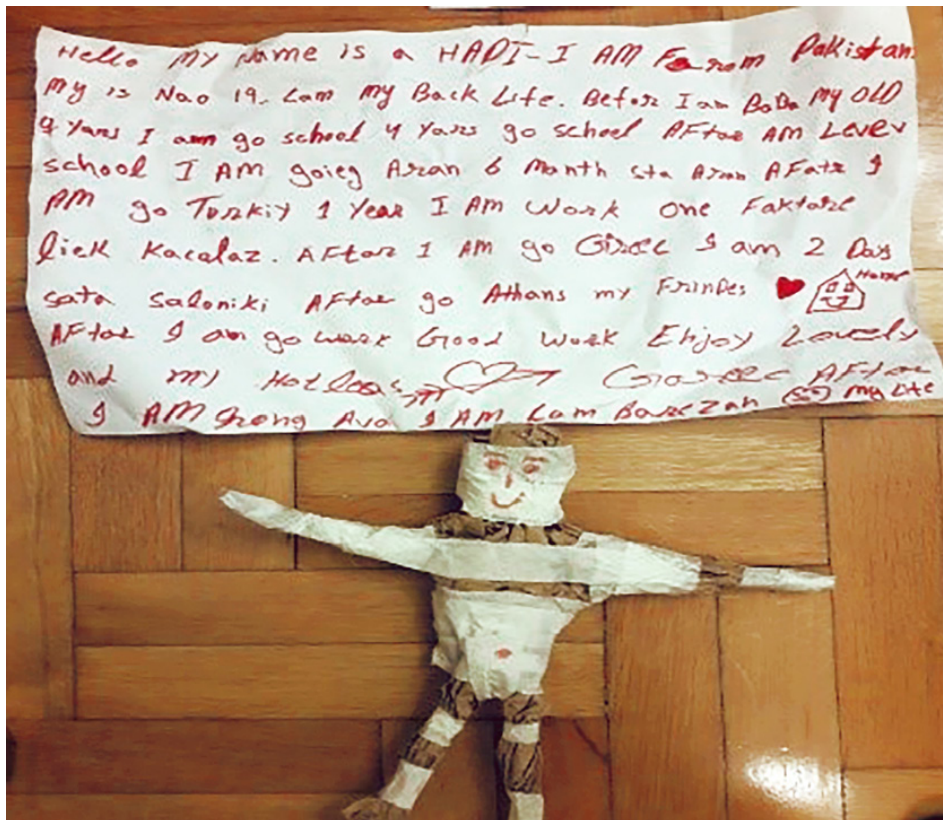 Hello My Name is a HADI-I AM Farom Pakistan
My is Nao 19. Lam My Back Life. Before I am BoBa My OLD
4 Yars I am go school 4 Yars go school AFtar AM Lever
school I AM goieg Aran 6 Month sta Aran AFatr I
AM go Turkiy 1 Year I AM Work one Faktare
liek Kacalaz. AFtar I AM go Girec I am 2 Days
sata Saloniki AFtar go Athans my Frindes Home
AFtar I am go work Good Work Enjoy Lovely
and my AFtar
I AM I AM Lam My Life